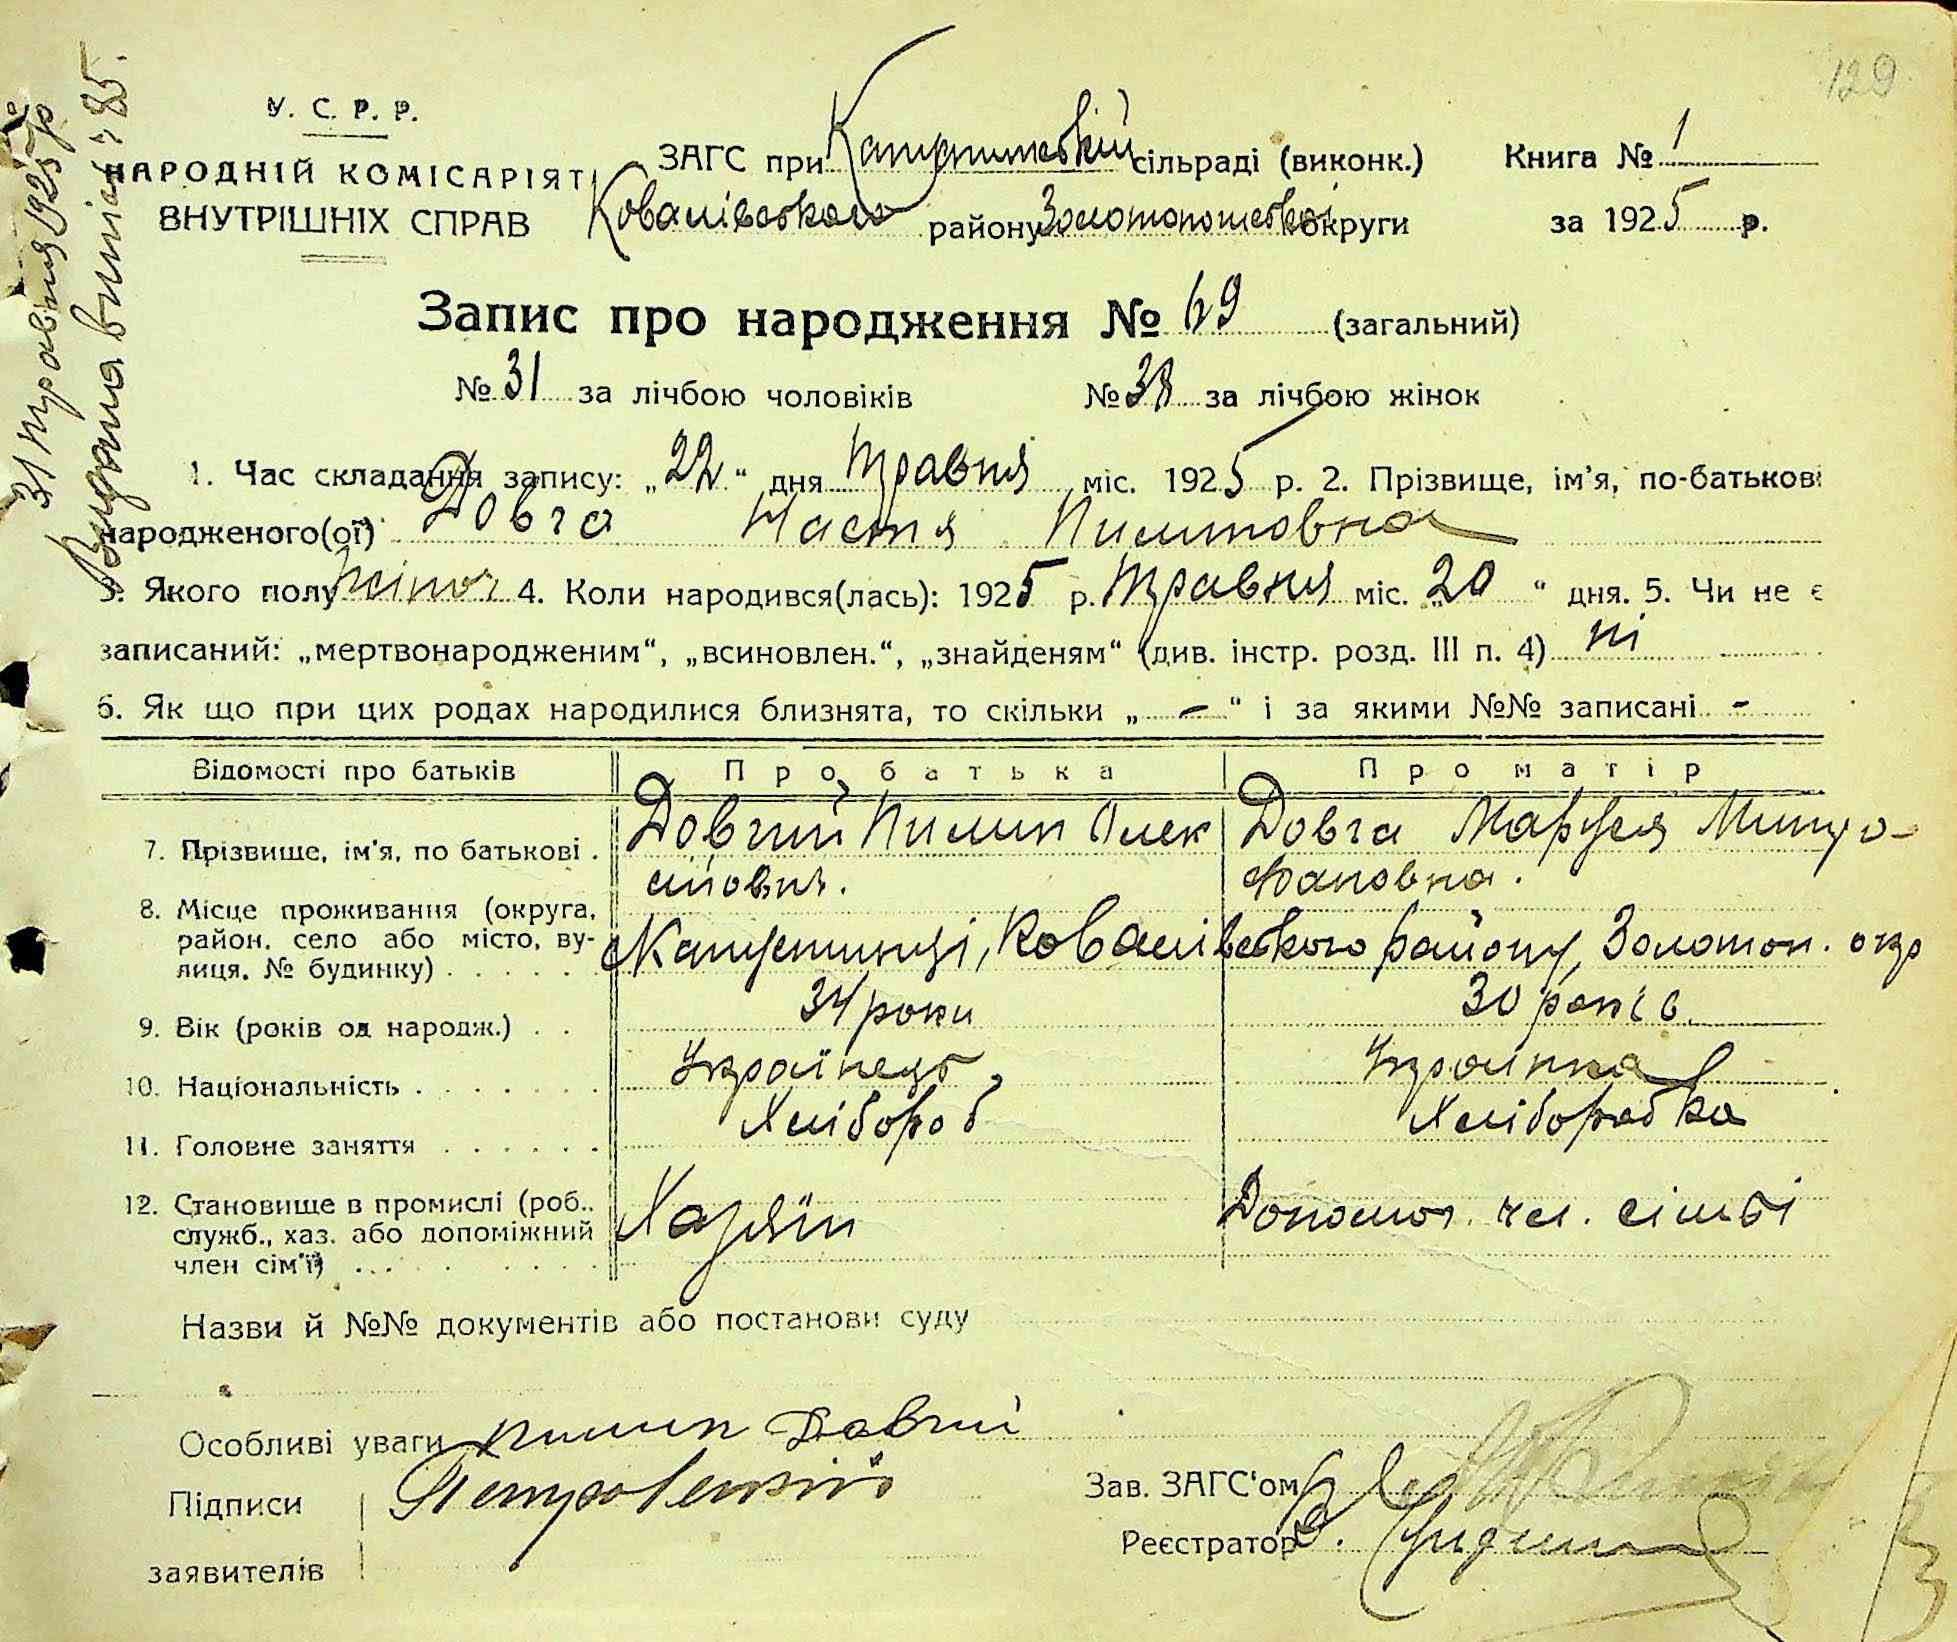 129
У. С. Р. Р.
НАРОДНІЙ КОМІСАРІЯТ
ВНУТРІШНІХ СПРАВ
ЗАГС при Капустинській сільраді (виконк.)
Ковалівського району Золотоношської округи
Книга № 1
за 1925 р.
31 травня 1925 р
Видана випись № 85.
Запис про народження № 69 (загальний)
№ 31 за лічбою чоловіків № 38 за лічбою жінок
1. Час складання запису: „22“ дня травня міс. 1925 р. 2. Прізвище, ім'я, по-батькові
народженого(ої) Довга Настя Пилиповна
3. Якого полу жіноч 4. Коли народився(лась): 1925 р. травня міс. „20“ дня. 5. Чи не є
записаний: „мертвонародженим“, „всиновлен.“, „знайденям“ (див. інстр. розд. III п. 4) ні
6. Як що при цих родах народилися близнята, то скільки „ - “ і за якими №№ записані -
Відомості про батьків Про батька Про матір
7. Прізвище, ім'я, по батькові . Довгий Пилип Олек Довга Маруся Митро-
сійович. фановна.
8. Місце проживання (округа,
район, село або місто, ву-
лиця, № будинку) . . . . . Капустинці, Ковалівського району, Золотон. окр
9. Вік (років од народж.) . . 34 роки 30 років
10. Національність . . . . . . . Українець Українка
11. Головне заняття . . . . . . Хлібороб Хліборобка
12. Становище в промислі (роб.,
служб., хаз. або допоміжний
член сім'ї) . . . Хазяїн Допомог. чл. сімьї
Назви й №№ документів або постанови суду
Особливі уваги Пилип Довгий
Підписи
заявителів
Зав. ЗАГС'ом
Реєстратор